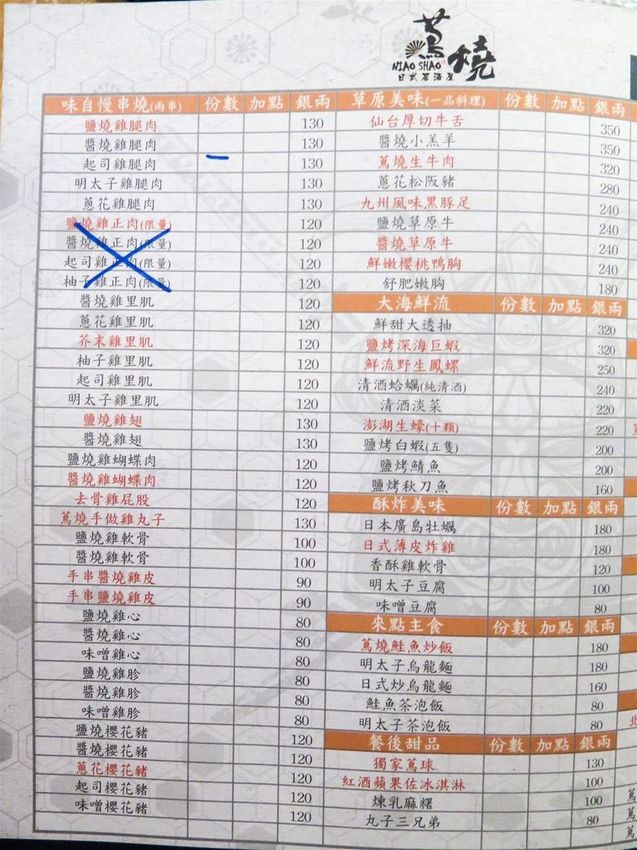 蔦燒
NIAO SHAO
日式居酒屋
味自慢串燒(兩串) 份數 加點 銀兩
鹽燒雞腿肉 130
醬燒雞腿肉 130
起司雞腿肉 130
明太子雞腿肉 130
蔥花雞腿肉 130
鹽燒雞正肉(限量) 120
醬燒雞正肉(限量) 120
起司雞正肉(限量) 120
柚子雞正肉(限量) 120
醬燒雞里肌 120
蔥花雞里肌 120
芥末雞里肌 120
柚子雞里肌 120
起司雞里肌 120
明太子雞里肌 120
鹽燒雞翅 130
醬燒雞翅 130
鹽燒雞蝴蝶肉 120
醬燒雞蝴蝶肉 120
去骨雞屁股 120
蔦燒手做雞丸子 130
鹽燒雞軟骨 100
醬燒雞軟骨 100
手串醬燒雞皮 90
手串鹽燒雞皮 90
鹽燒雞心 80
醬燒雞心 80
味噌雞心 80
鹽燒雞胗 80
醬燒雞胗 80
味噌雞胗 80
鹽燒櫻花豬 120
醬燒櫻花豬 120
蔥花櫻花豬 120
起司櫻花豬 120
味噌櫻花豬 120
草原美味(一品料理) 份數 加點 銀兩
仙台厚切牛舌 350
醬燒小羔羊 350
蔦燒生牛肉 320
蔥花松阪豬 280
九州風味黑豚足 240
鹽燒草原牛 240
醬燒草原牛 240
鮮嫩櫻桃鴨胸 240
舒肥嫩胸 180
大海鮮流 份數 加點 銀兩
鮮甜大透抽 320
鹽烤深海巨蝦 320
鮮流野生鳳螺 250
清酒蛤蠣(純清酒) 240
清酒淡菜 220
澎湖生蠔(十顆) 220
鹽烤白蝦(五隻) 200
鹽烤鯖魚 200
鹽烤秋刀魚 160
酥炸美味 份數 加點 銀兩
日本廣島牡蠣 180
日式薄皮炸雞 180
香酥雞軟骨 120
明太子豆腐 100
味噌豆腐 80
來點主食 份數 加點 銀兩
蔦燒鮭魚炒飯 180
明太子烏龍麵 180
日式炒烏龍麵 160
鮭魚茶泡飯 80
明太子茶泡飯 80
餐後甜品 份數 加點 銀兩
獨家蔦球 130
紅酒蘋果佐冰淇淋 100
煉乳麻糬 100
丸子三兄弟 80